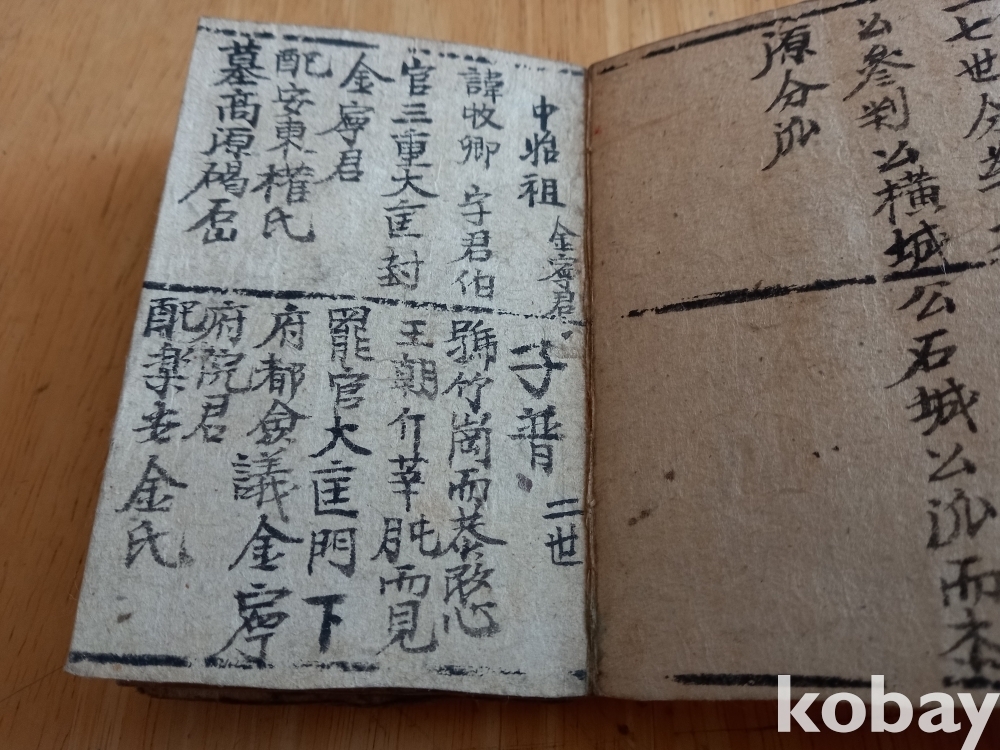 七世分
公參判公橫城
公石城公派而本
源分派
中始祖 金寧君
諱牧卿 字君伯
官三重大匡封
金寧君
配安東權氏
墓高源碣
子普 二世
號竹崗 而恭愍
王朝 辛旽 而見
罷官大匡門下
府都僉議金寧
府院君
配樂安金氏
kobay